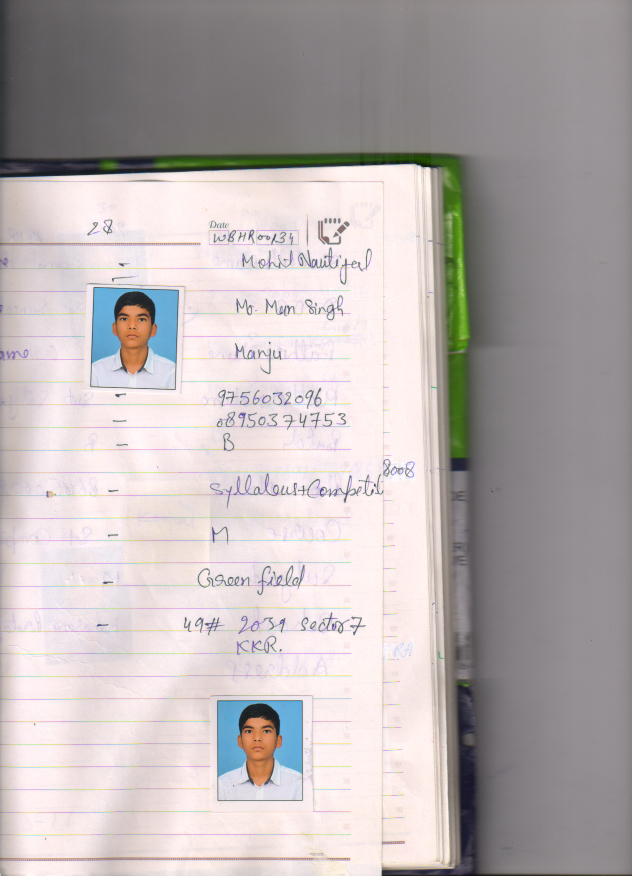 28 Date
WBHR00134
- Mohit Nautiyal
-
Mr. Mem Singh
ame Manju
- 9756032096
- 08950374753
- B
8008
- Syllabus+Competit
- M
- Green field
- 49# 2039 Sector 7
KKR.